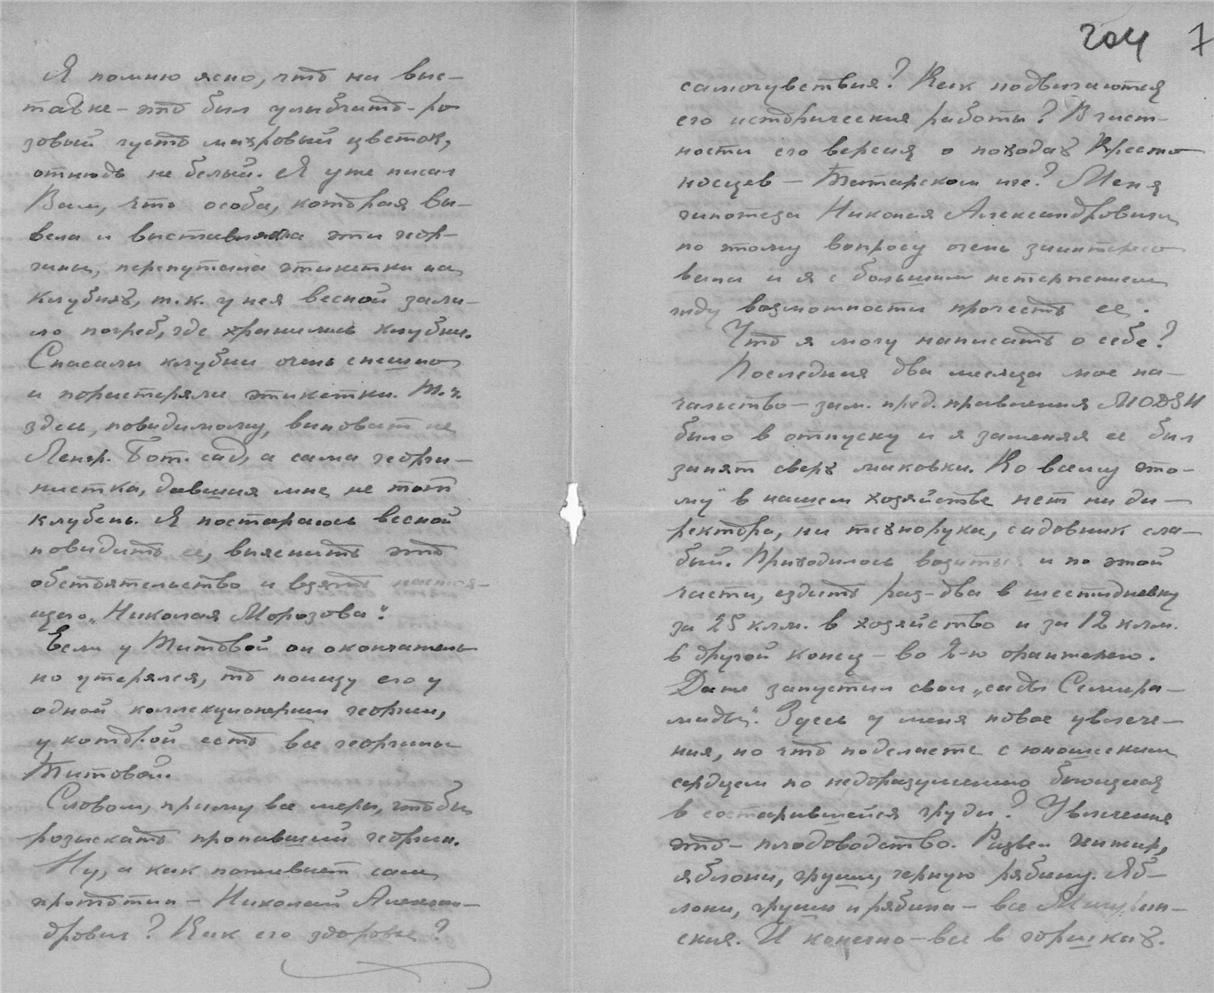 204 7
Я помню ясно, что на выс-
тавке - это был улыбчато-ро
зовый густо махровый цветок,
отнюдь не белый. Я уже писал
Вам, что особа, которая вы-
вела и выставляла эти геор-
гины, перепутала этикетки на
клубнях, т.к. у нея весной зали-
ло погреб, где хранились клубни.
Спасали клубни очень спешно
и порастеряли этикетки. Т.ч.
здесь, повидимому, виноват не
Ленгр. Бот. сад, а сама георги-
нистка, давшая мне не тот
клубень. Я постараюсь весной
повидать ее, выяснить это
обстоятельство и взять настоя-
щего „Николая Морозова".
Если у Титовой он окончатель
но утерялся, то поищу его у
одной коллекционерши георгин,
у которой есть все георгины
Титовой.
Словом, приму все меры, чтобы
розыскать пропавший георгин.
Ну, а как поживает сам
прототип - Николай Алексан-
дрович? Как его здоровье?
самочувствия? Как подвигаются
его исторические работы? В част-
ности его версия о походах Кресто
носцев - Татарском иге? Меня
гипотеза Николая Александровича
по этому вопросу очень заинтересо
вала и я с большим нетерпением
жду возможности прочесть ее.
Что я могу написать о себе?
Последния два месяца мое на-
чальство - зам. пред. правления МОДЗН
было в отпуску и я заменяя ее был
занят сверх маковки. Ко всему это-
му в нашем хозяйстве нет ни ди-
ректора, ни технорука, садовник сла-
бый. Приходилось возиться и по этой
части, ездить раз-два в шестидневку
за 25 клм. в хозяйство и за 12 клм.
в другой конец - во 2-ю оранжерею.
Даже запустил свои „сады Семира-
миды". Здесь у меня новое увлече-
ния, но что поделаете с юношеским
сердцем по недоразумению бьющимся
в состарившейся груди? Увлечение
это - плодоводство. Развел инжир,
яблони, груши, черную рябину. Яб-
лони, груши и рябина - все Мичурин-
ския. И конечно - все в горшках.